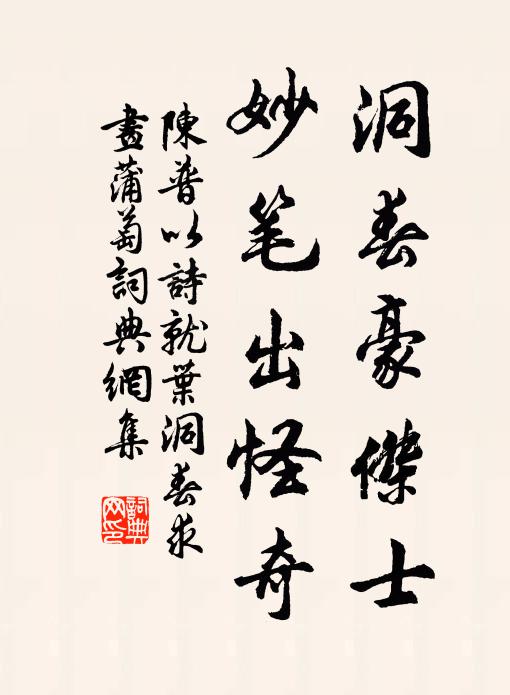 洞春豪傑士
妙笔出怪奇
陳普以詩就葉洞春求
畫蒲萄詞典網集
詞典
网印